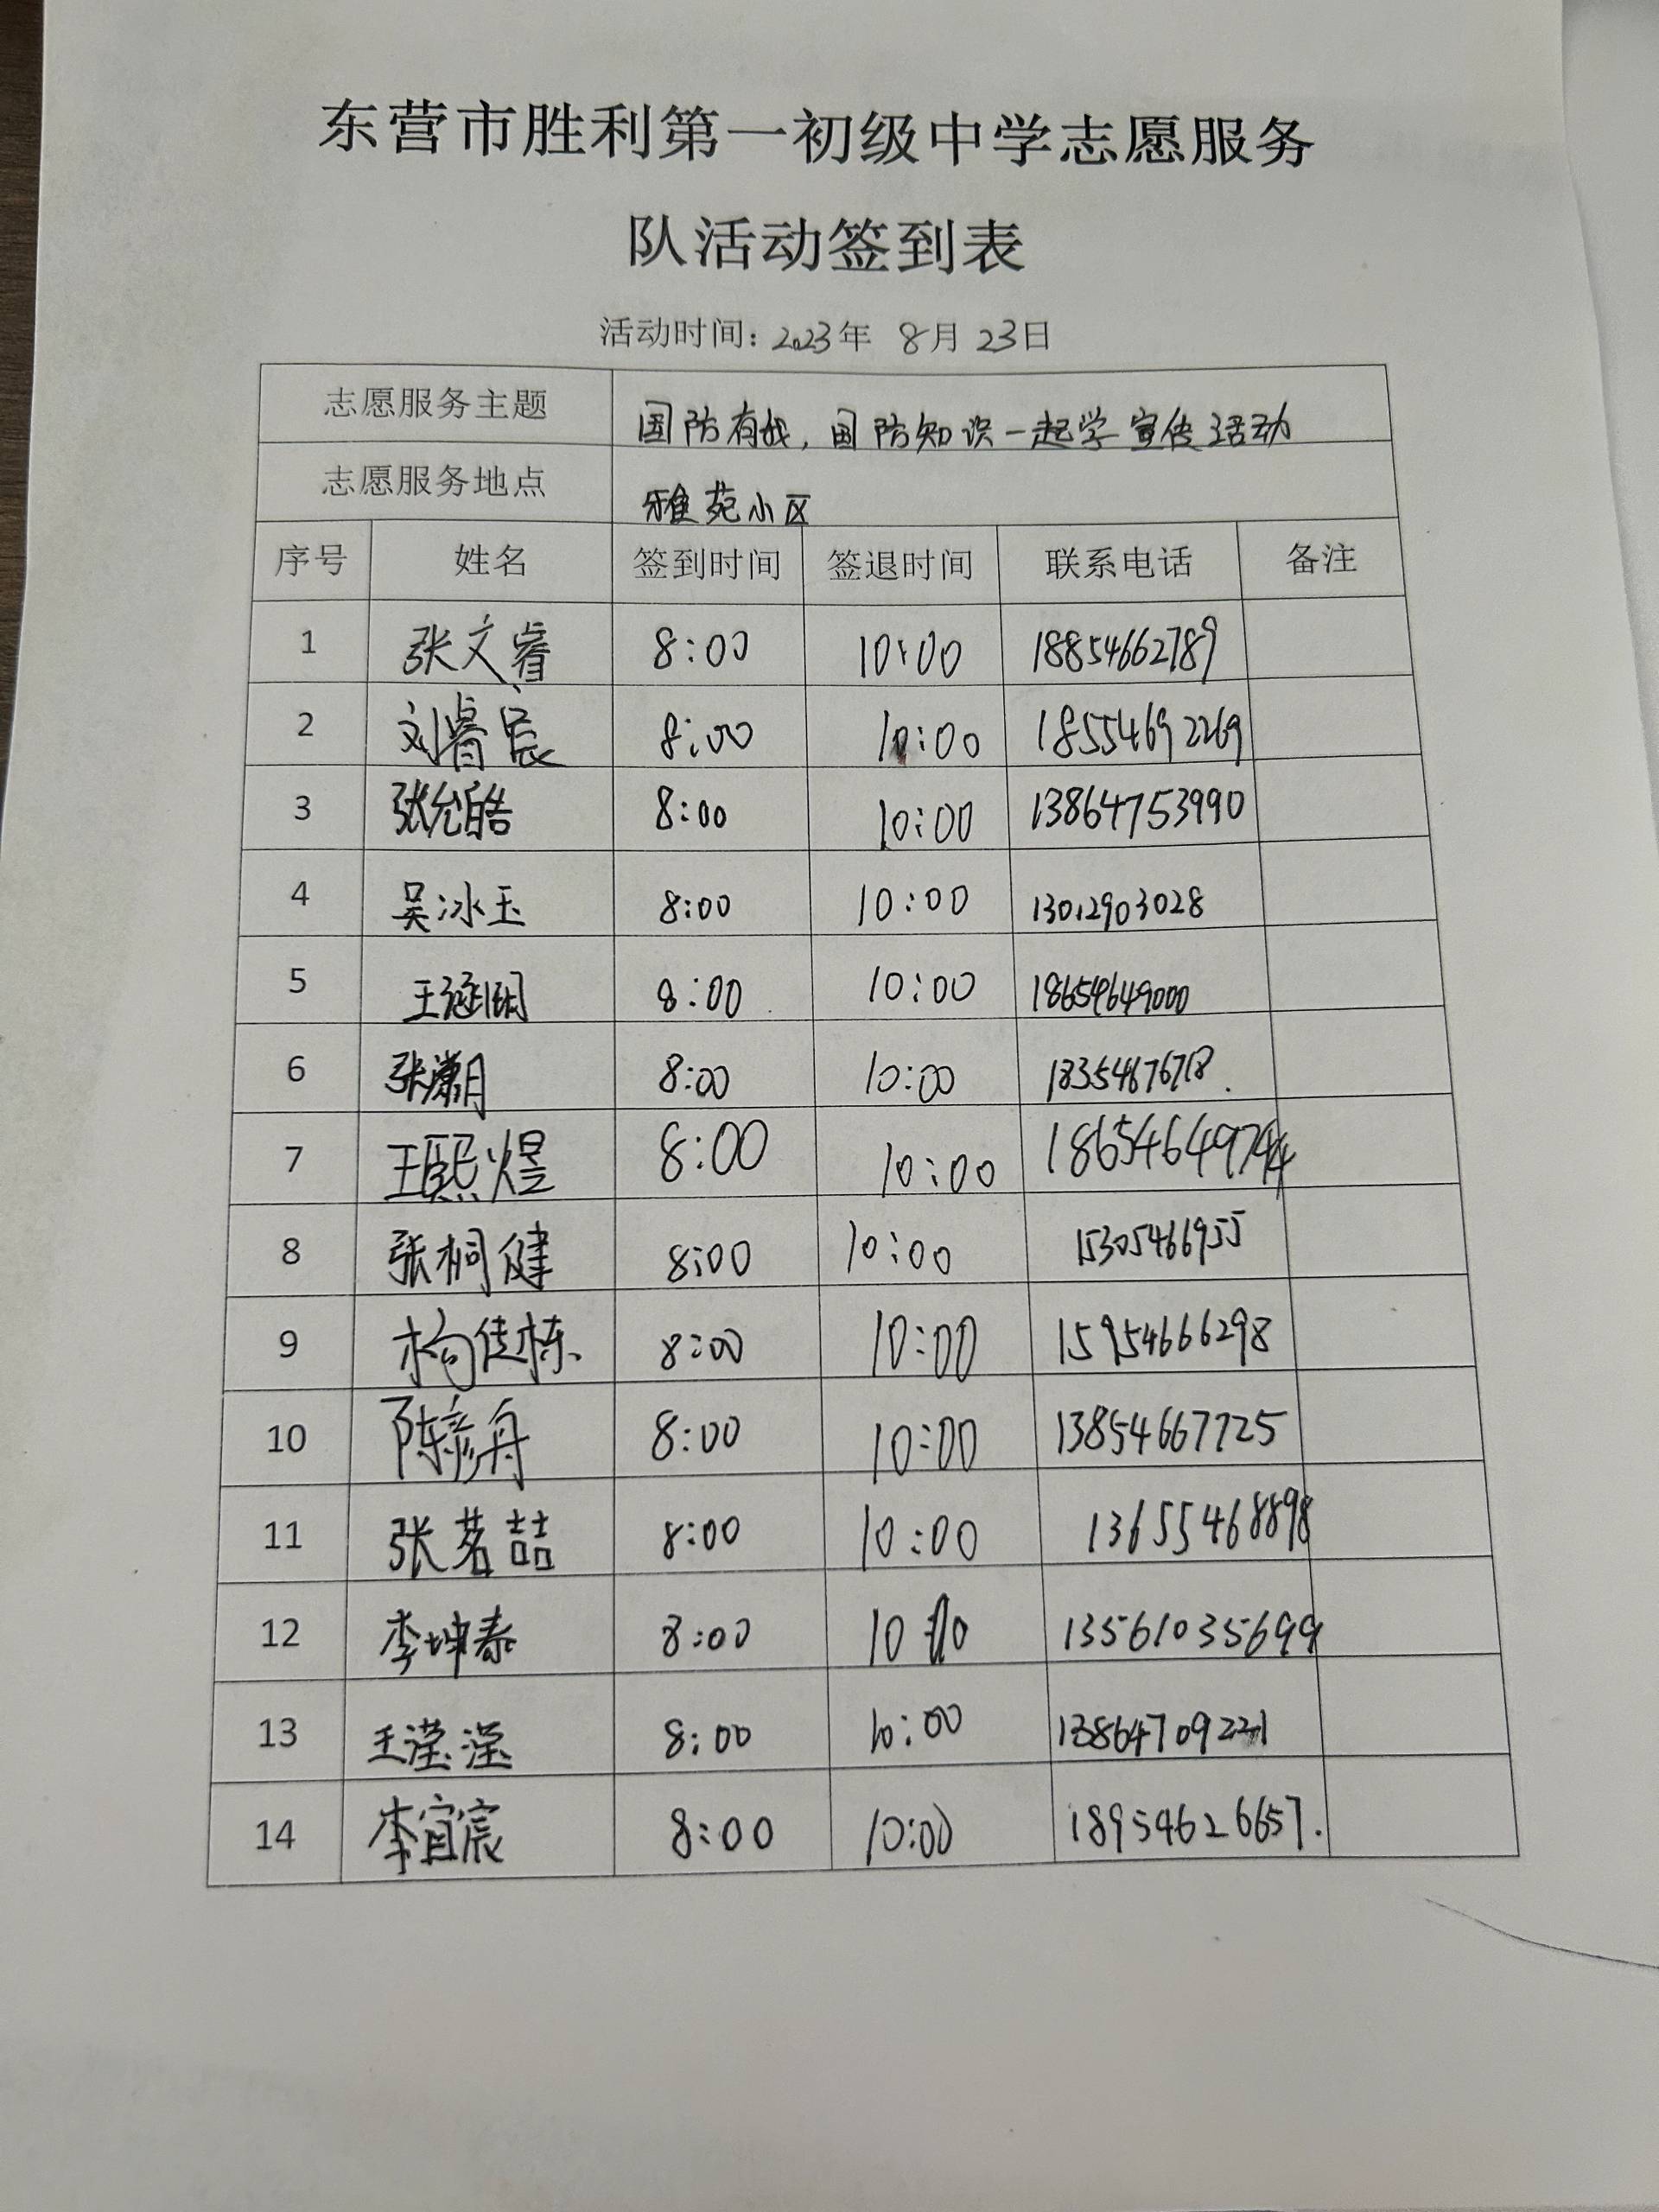 东营市胜利第一初级中学志愿服务
队活动签到表
活动时间: 2023年 8月 23日
志愿服务主题 国防有我，国防知识一起学宣传活动
志愿服务地点 雅苑小区
序号 姓名 签到时间 签退时间 联系电话 备注
1 张文睿 8:00 10:00 18854662789
2 刘睿宸 8:00 10:00 18554692269
3 张允皓 8:00 10:00 13864753990
4 吴冰玉 8:00 10:00 13012903028
5 8:00 10:00 18654649000
6 张潇月 8:00 10:00 18354676718.
7 王熙煜 8:00 10:00
8 张桐健 8:00 10:00 15305466955
9 8:00 10:00 15954666298
10 陈彦舟 8:00 10:00 13854667725
11 张茗喆 8:00 10:00 13655468898
12 李坤泰 8:00 10 13561035699
13 王滢滢 8:00 10:00 13864709221
14 李宜宸 8:00 10:00 18954626657.